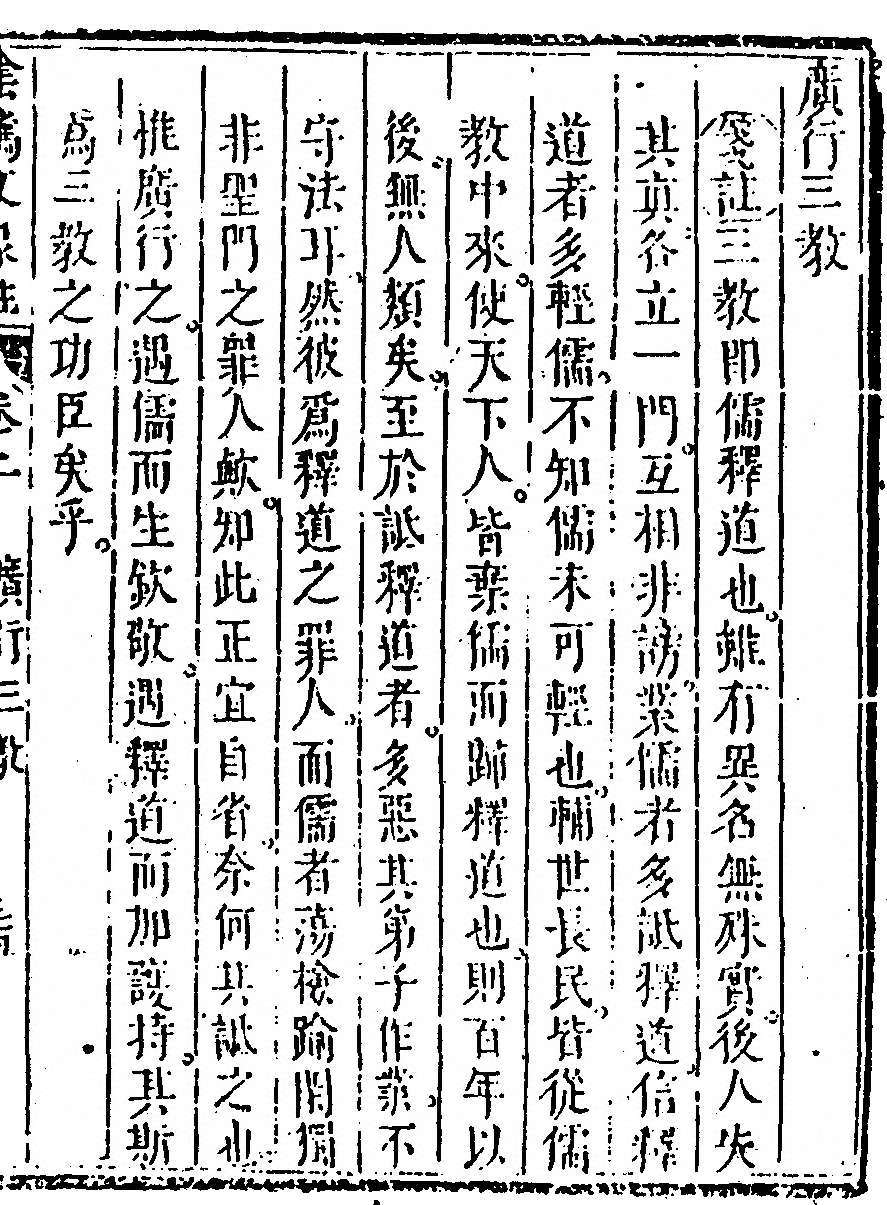 廣行三教
箋註三教即儒釋道也雖有異名無殊實後人失
其真各立一門互相非謗業儒者多詆釋道信釋
道者多輕儒不知儒未可輕也輔世長民皆從儒
教中來使天下人皆棄儒而歸釋道也則百年以
後無人類矣至於詆釋道者多惡其弟子作業不
守法耳然彼爲釋道之罪人而儒者蕩檢踰閑獨
非聖門之罪人歟知此正宜自省奈何其詆之也
惟廣行之遇儒而生欽敬遇釋道而加護持其斯
爲三教之功臣矣乎
卷二 廣行三教